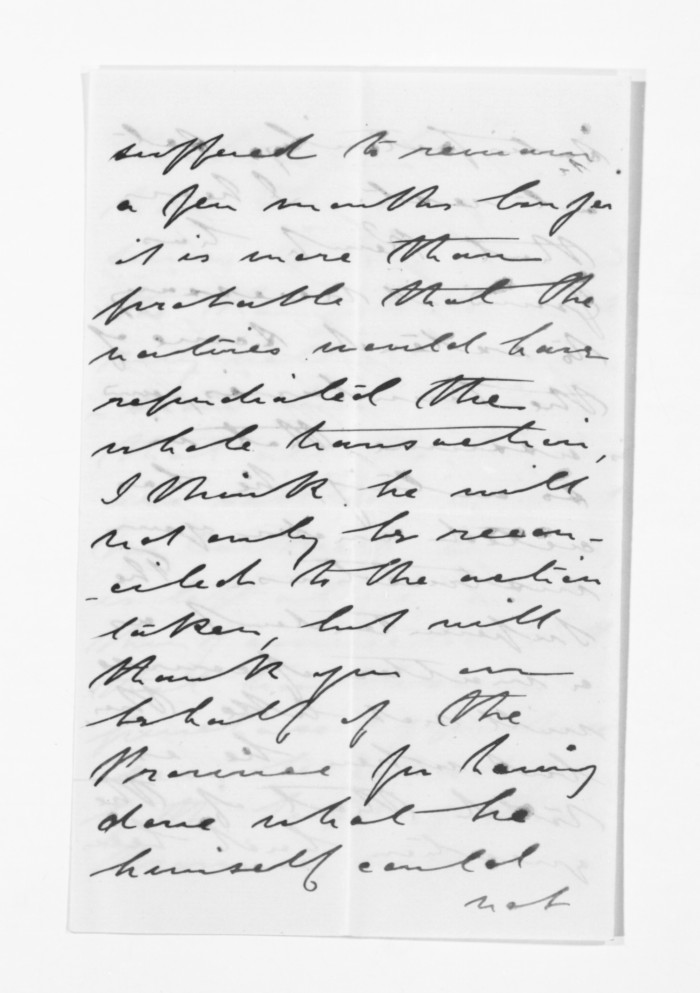 suffered to remain
a few months longer
it is more than
probable that the
natives would have
repudiated the
whole transaction,
I think he will
not only be recon-
-ciled to the action
taken, but will
thank you on
behalf of the
Province for having
done what he
himself could
not